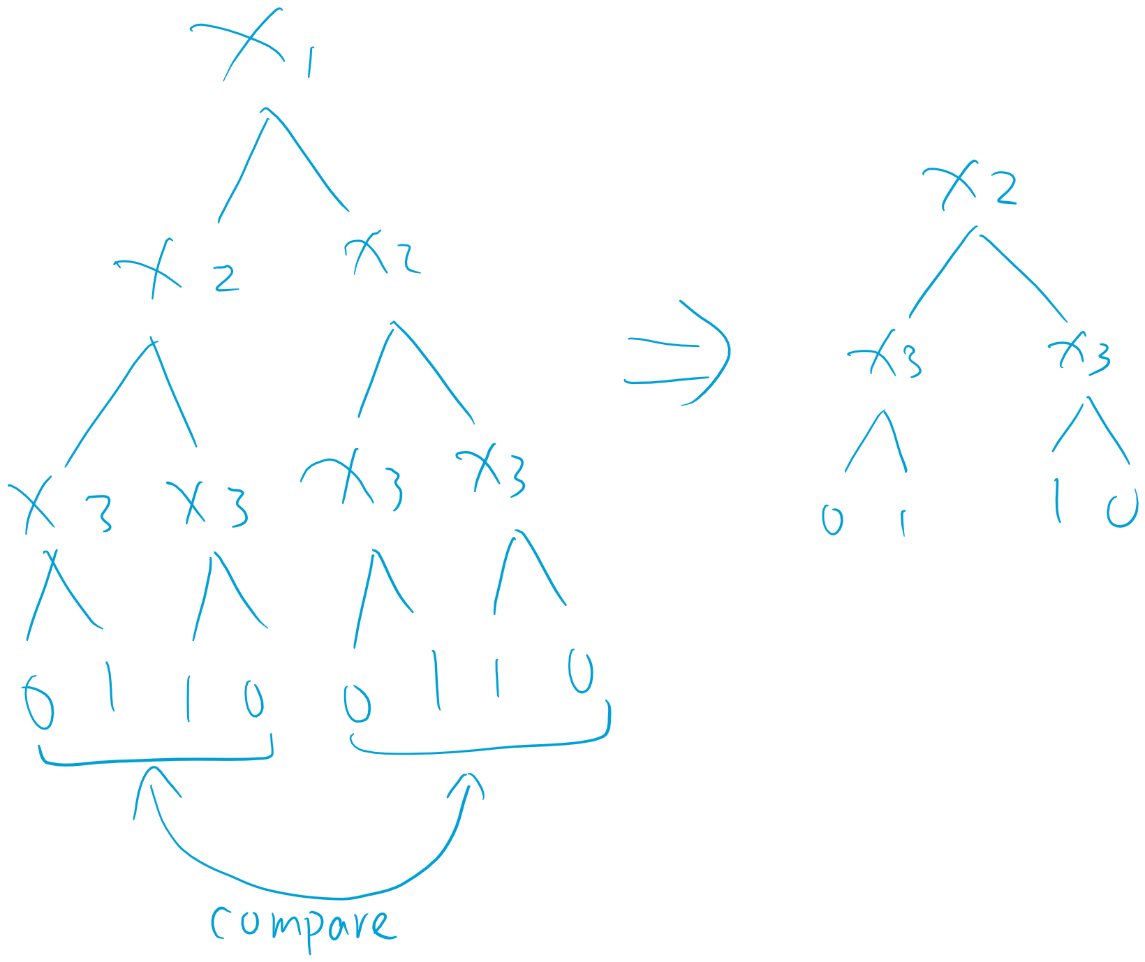 x1
x2 x2
x3 x3 x3 x3
0 1 1 0 0 1 1 0
compare
x2
x3 x3
0 1 1 0